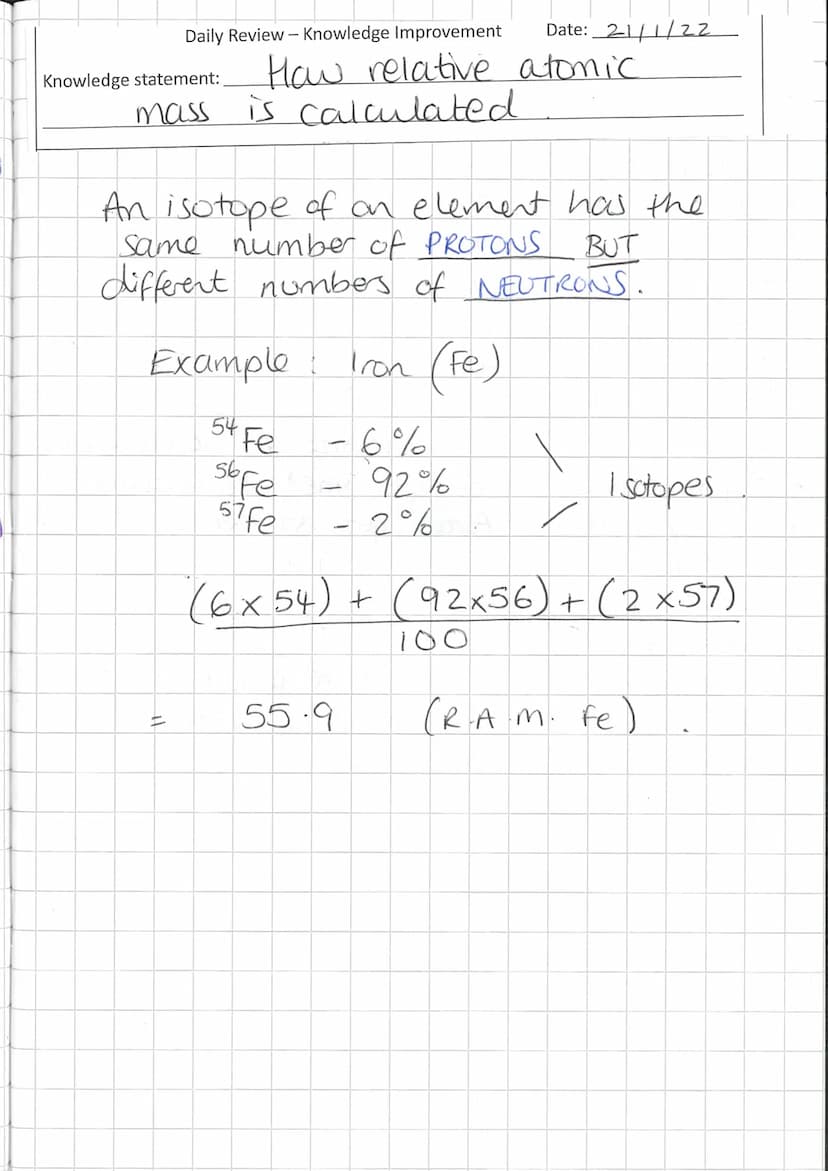 Daily Review – Knowledge Improvement Date: 21/1/22
Knowledge statement: How relative atomic
mass is calculated.
An isotope of an element has the
same number of PROTONS BUT
different numbers of NEUTRONS.
Example: Iron (Fe)
⁵⁴Fe - 6%
⁵⁶Fe - 92%
Isotopes.
⁵⁷Fe - 2%
(6 x 54) + (92 x 56) + (2 x 57)
100
= 55.9 (R.A.M. Fe).